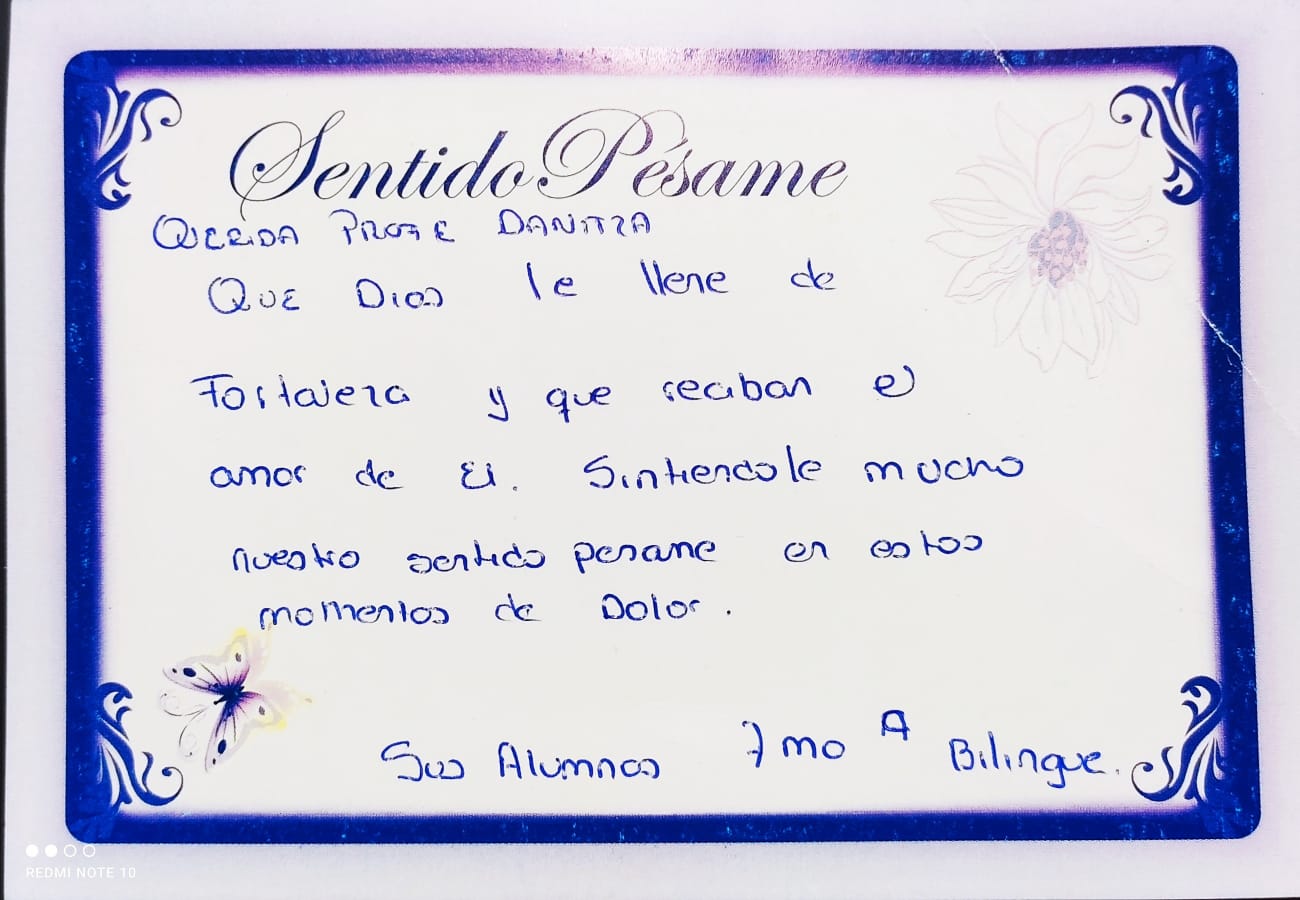 Sentido Pésame
QUERIDA PROFE DANITZA
QUE DIOS le llene de
Fortaleza y que reciban el
amor de El. Sintiendole mucho
nuestro sentido pesame en estos
momentos de Dolor.
Sus Alumnos 7mo A Bilingue.
REDMI NOTE 10